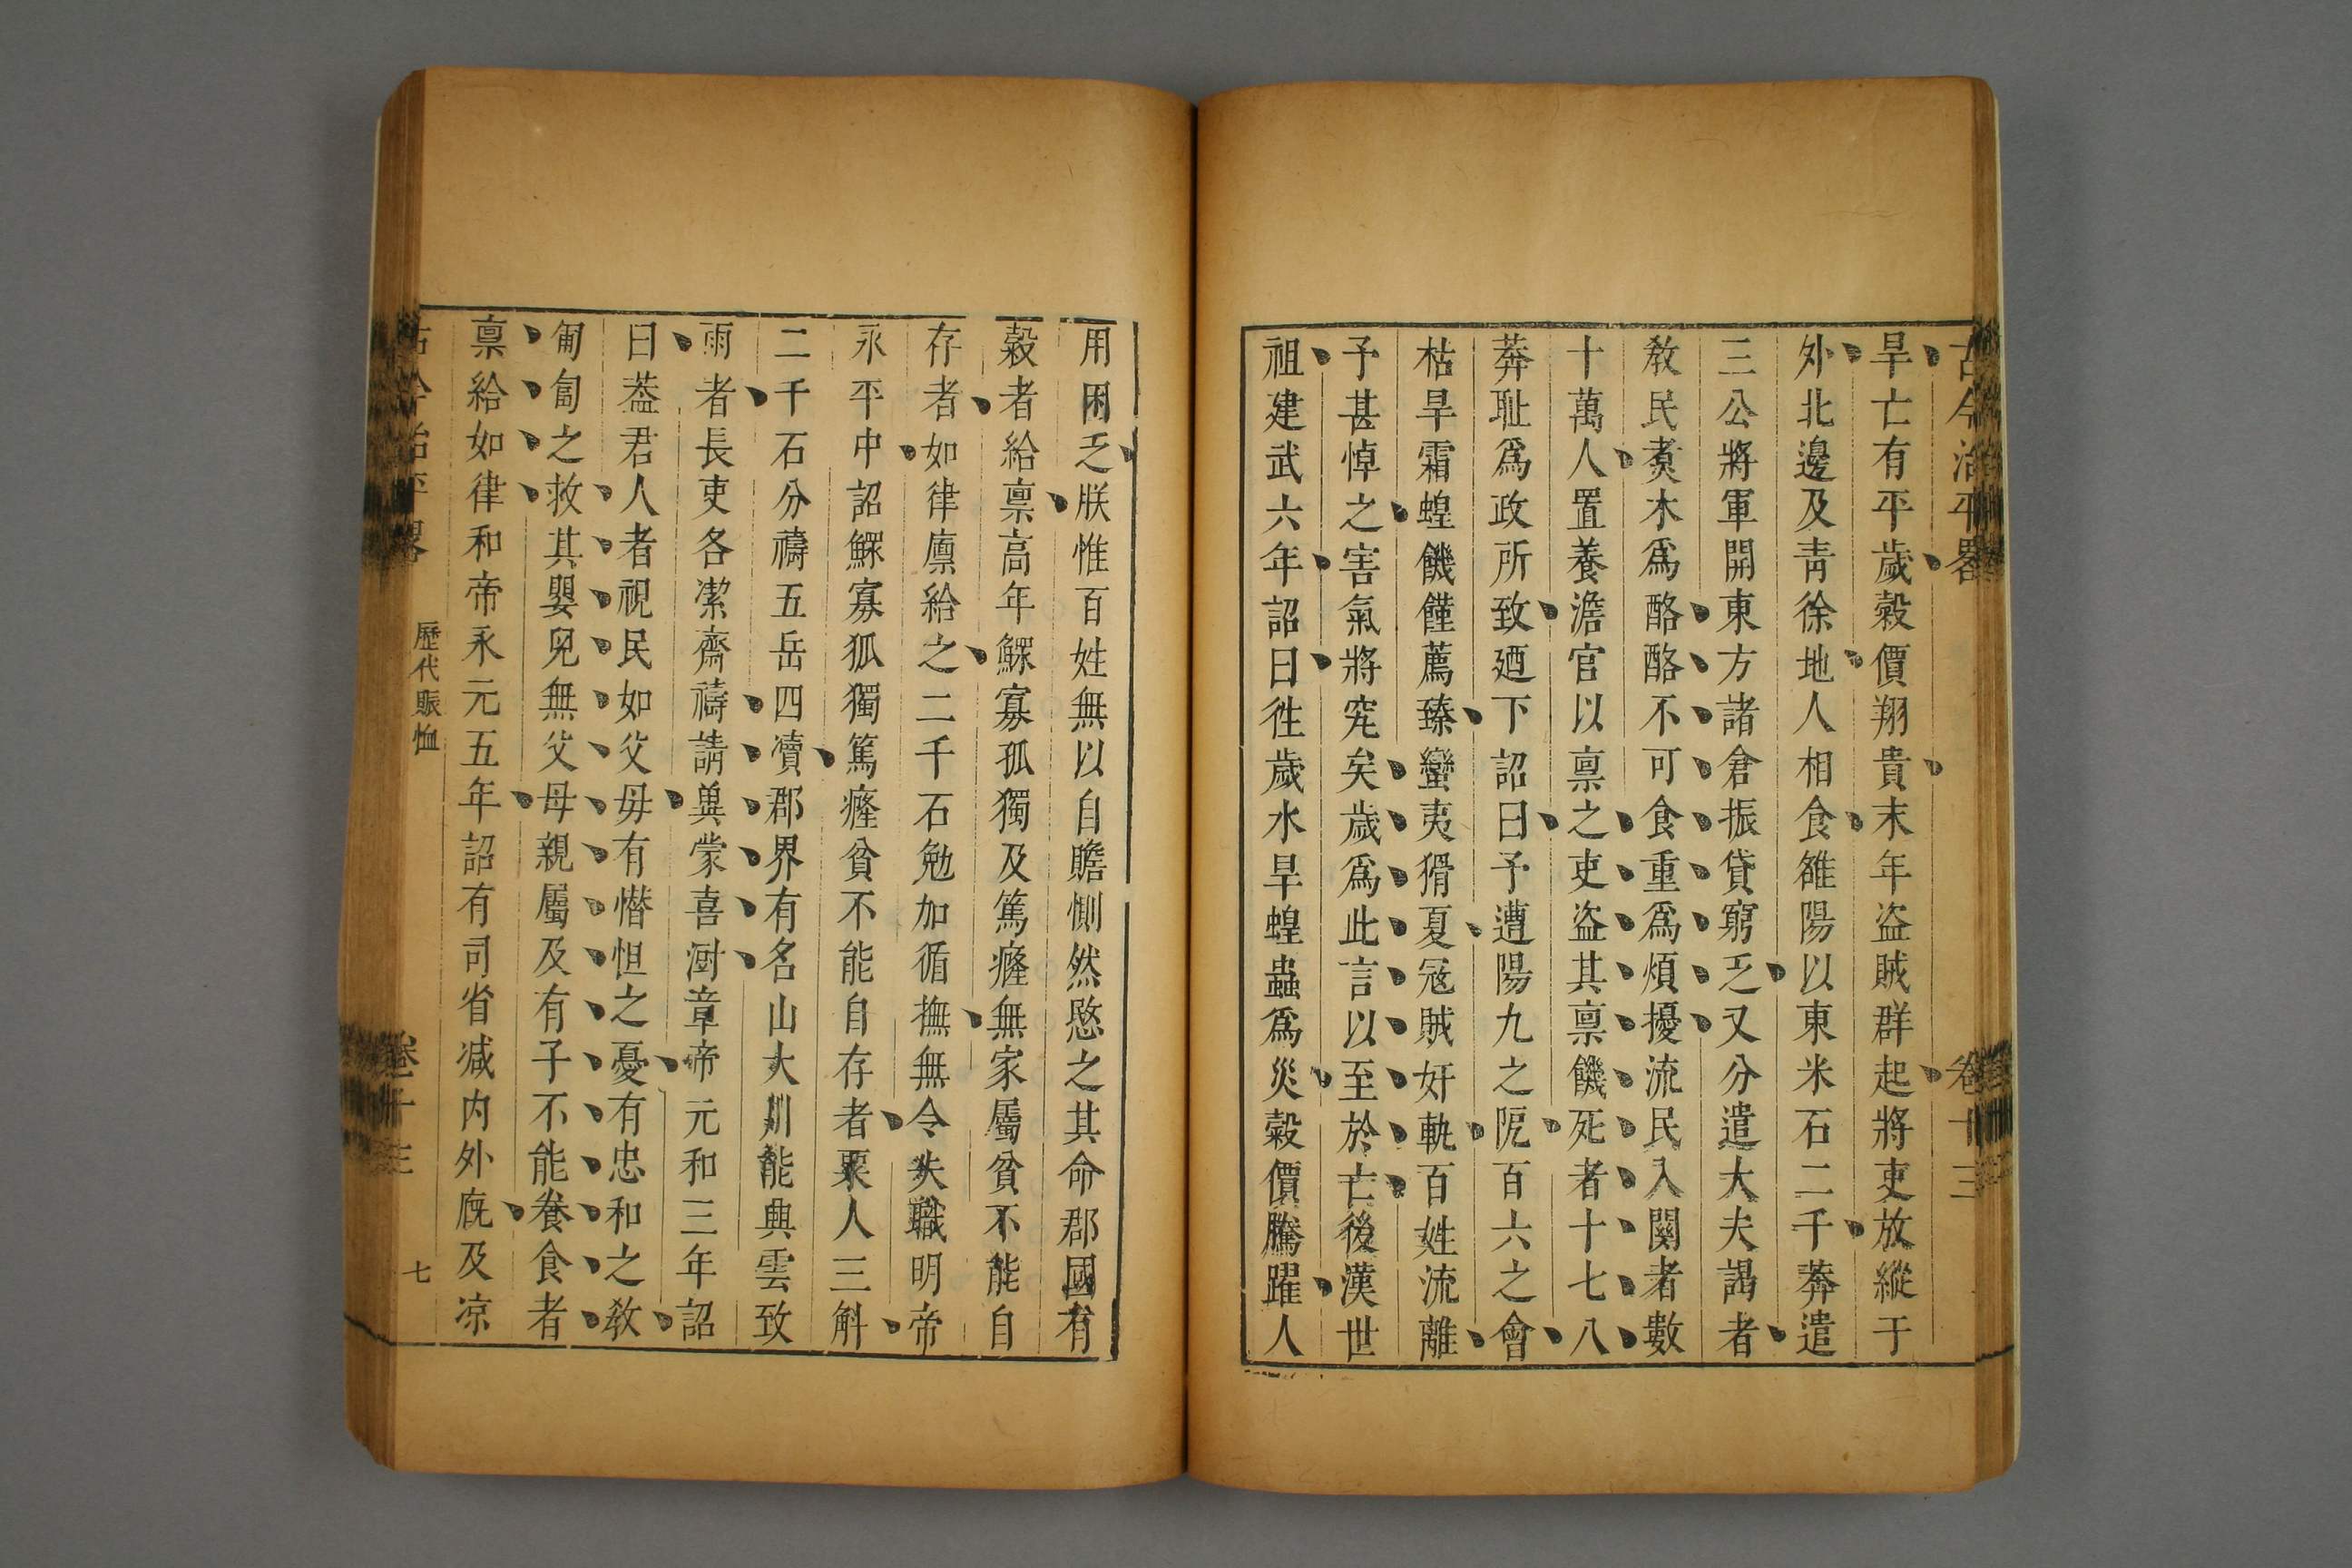 古今治平畧 卷十三
旱亡有平歲穀價翔貴末年盜賊群起將吏放縱于
外北邊及靑徐地人相食雒陽以東米石二千莽遣
三公將軍開東方諸倉振貸窮乏又分遣大夫謁者
敎民煑木爲酪酪不可食重爲煩擾流民入關者數
十萬人置養澹官以禀之吏盜其禀饑死者十七八
莽耻爲政所致廼下詔曰予遭陽九之阨百六之會
枯旱霜蝗饑饉薦臻蠻夷猾夏宼賊奸軌百姓流離
予甚悼之害氣將究矣歲爲此言以至於亡後漢世
祖建武六年詔曰徃歲水旱蝗蟲爲災穀價騰躍人
用困乏朕惟百姓無以自贍惻然愍之其命郡國有
穀者給禀高年鰥寡孤獨及篤癃無家屬貧不能自
存者如律廪給之二千石勉加循撫無令失職明帝
永平中詔鰥寡狐獨篤癃貧不能自存者粟人三斛
二千石分禱五岳四凟郡界有名山大川能興雲致
雨者長吏各潔齋禱請兾蒙喜澍章帝元和三年詔
曰葢君人者視民如父毋有憯怛之憂有忠和之敎
匍匐之救其嬰兒無父母親屬及有子不能養食者
禀給如律和帝永元五年詔有司省减内外廐及凉
古今治平畧 歷代賑恤 卷十三 七